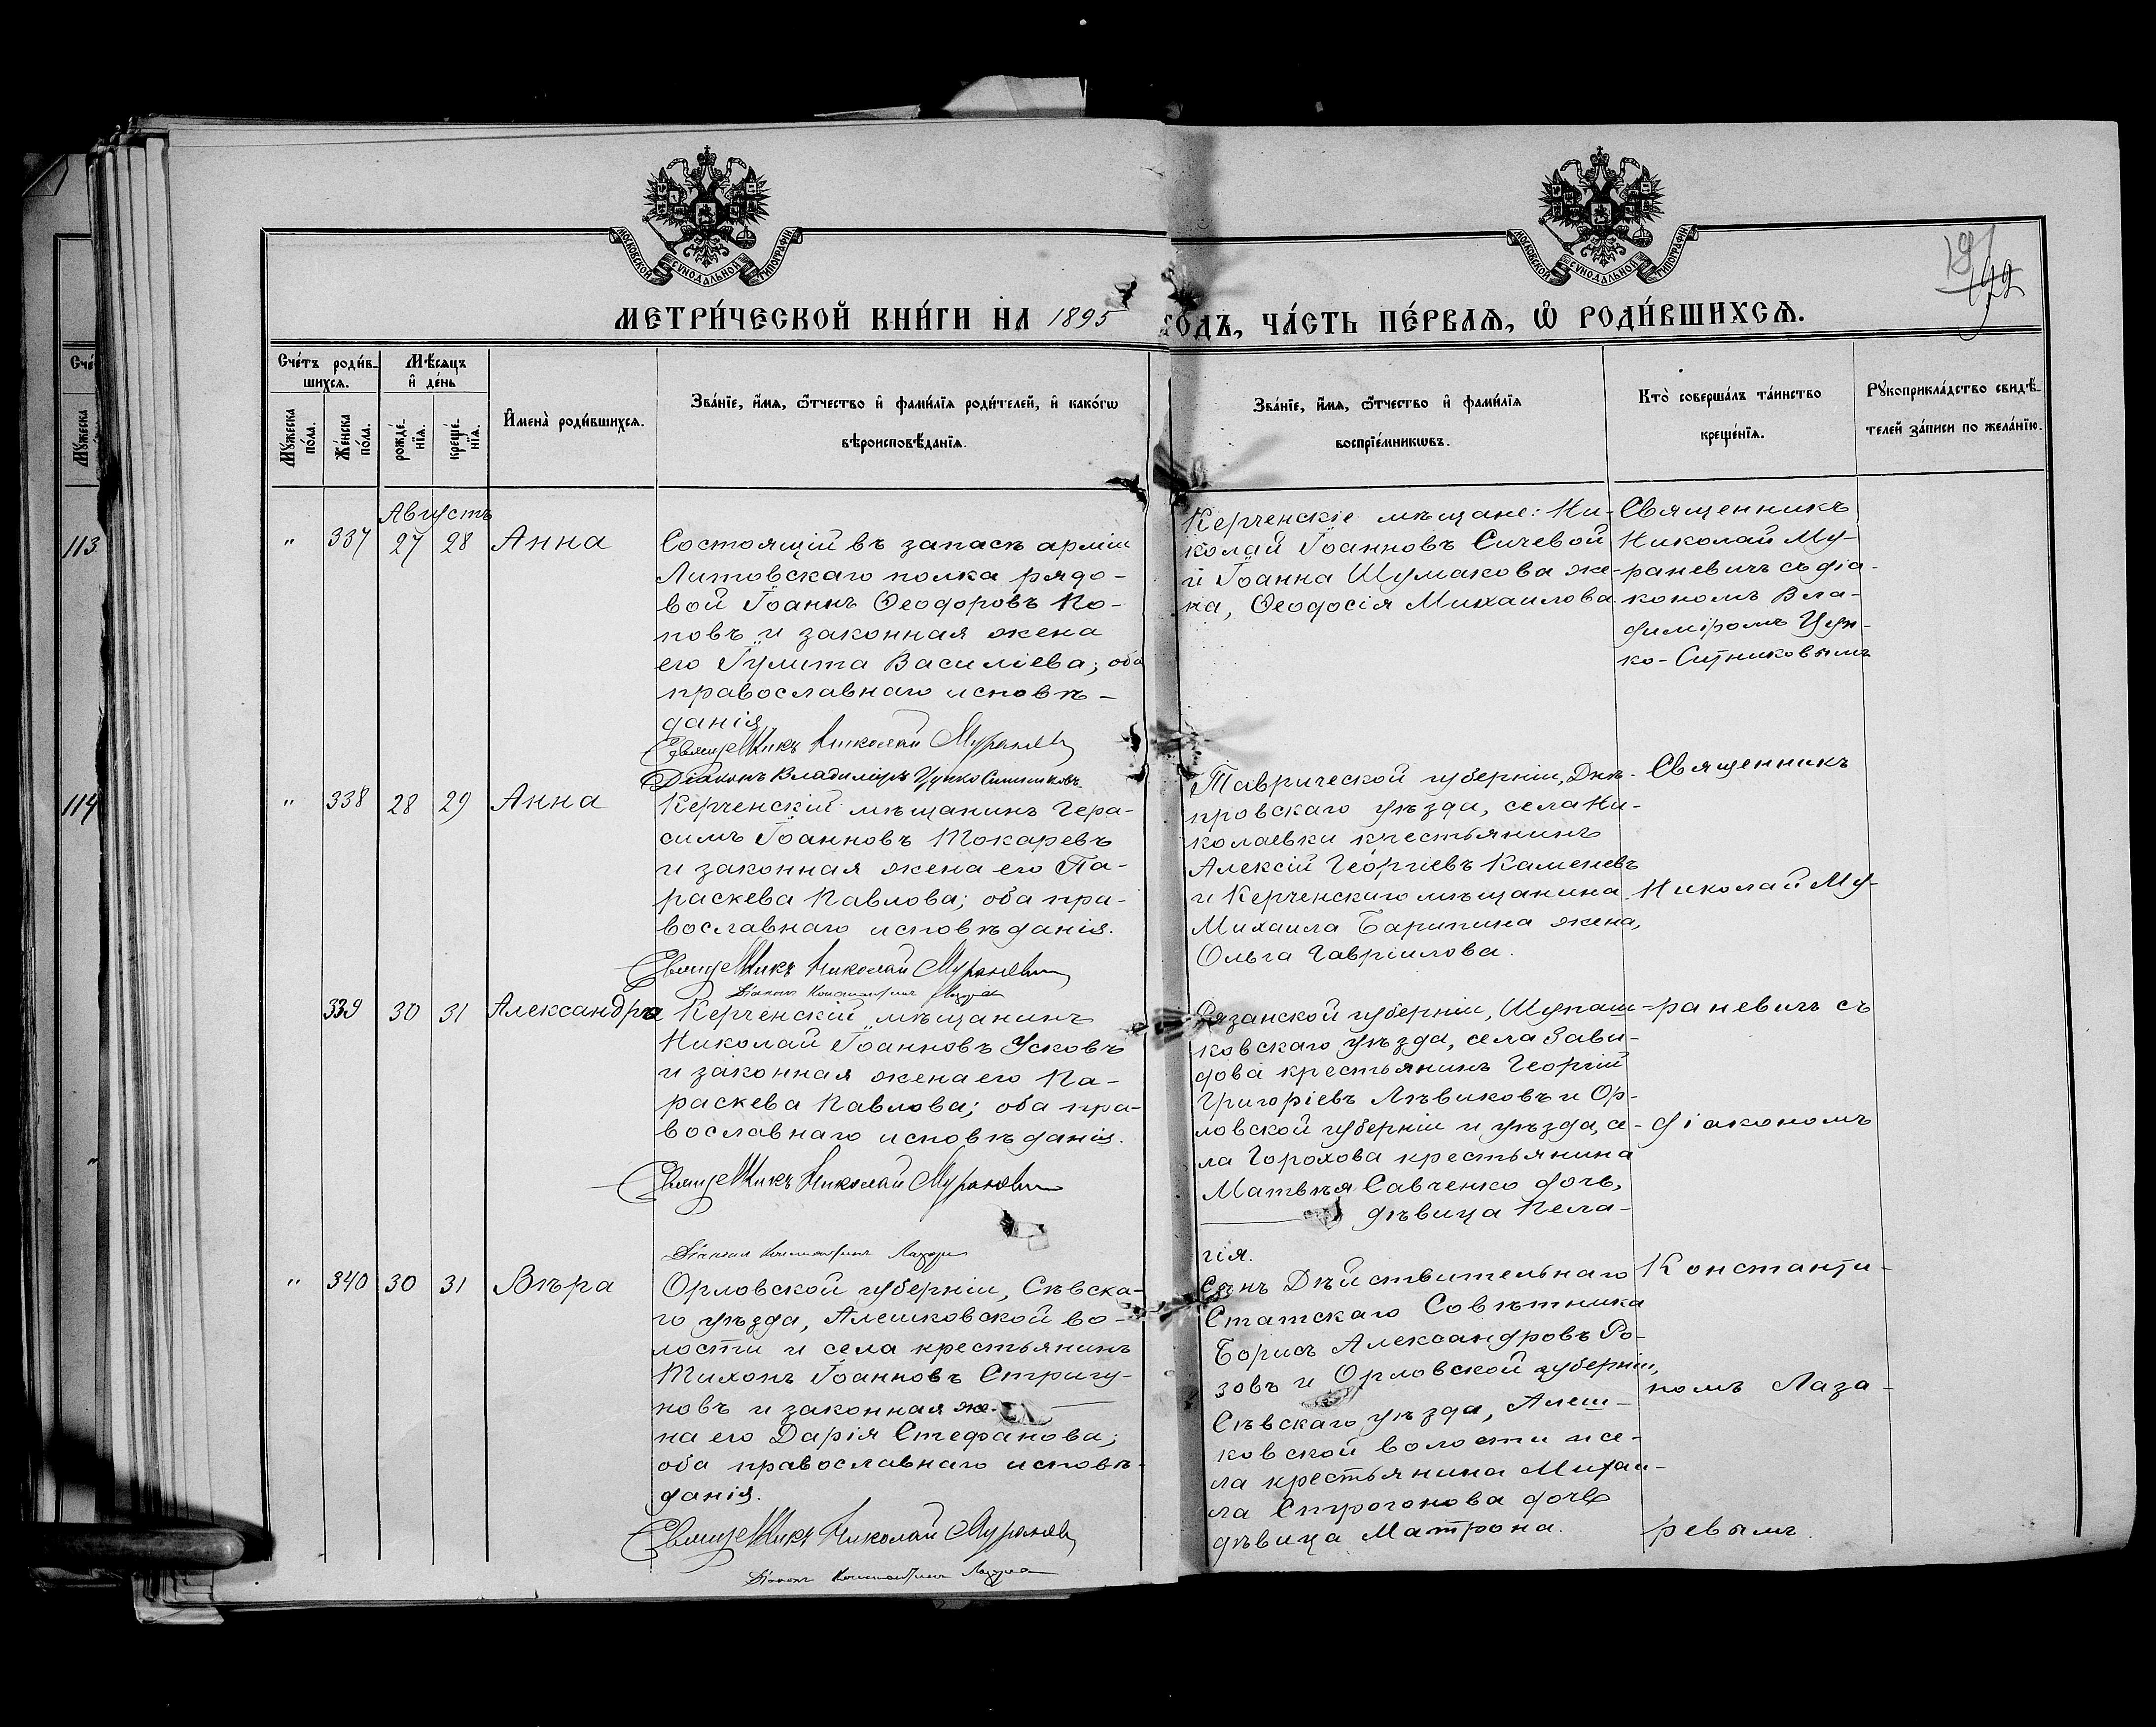 МОСКОВСКОЙ СУНОДАЛЬНОЙ ТИПОГРАФІИ
МОСКОВСКОЙ СУНОДАЛЬНОЙ ТИПОГРАФІИ
192
МЕТРИ́ЧЕСКОЙ КНИ́ГИ НА 1895 ГОДЪ, ЧА́СТЬ ПЕ́РВАѦ, Ѡ РОДИ́ВШИХСѦ.
Сче́тъ роди́в-
шихсѧ.
Мꙋжеска по́ла.
Же́нска по́ла.
Мѣ́сѧцъ
и҆ де́нь
рожде́нїѧ.
креще́нїѧ.
И҆мена̀ роди́вшихсѧ.
Зва́нїе, и҆́мѧ, ѻ҆́тчество и҆ фами́лїѧ роди́телей, и҆ како́гѡ
вѣроисповѣ́данїѧ.
Зва́нїе, и҆́мѧ, ѻ҆́тчество и҆ фами́лїѧ
воспрїе́мникѡвъ.
Кто̀ соверша́лъ та́инство
креще́нїѧ.
Рꙋкоприкла́дство свидѣ́-
телей за́писи по жела́нїю.
113
114
Августъ
" 337 27 28 Анна
Состоящій въ запасѣ арміи
Литовскаго полка рядо-
вой Іоаннъ Ѳеодоровъ По-
повъ и законная жена
его Іулита Василіева; оба
православнаго исповѣ-
данія
Священникъ Николай Мураневич
Діаконъ Владиміръ Цупко Ситниковъ
Керченскіе мѣщане: Ни-
колай Іоанновъ Сичевой
и Іоанна Шумакова же-
на, Ѳеодосія Михаилова
Священникъ
Николай Му-
раневичъ съ діа-
кономъ Вла-
диміромъ Цуп-
ко-Ситниковымъ
" 338 28 29 Анна
Керченскій мѣщанинъ Гера-
симъ Іоанновъ Токаревъ
и законная жена его Па-
раскева Павлова; оба пра-
вославнаго исповѣданія.
Священникъ Николай Мураневич
Діаконъ Константинъ Лазарев
Таврической губерніи, Днѣ-
провскаго уѣзда, села Ни-
колаевки крестьянинъ
Алексій Георгіевъ Каменевъ
и Керченскаго мѣщанина
Михаила Барипина жена,
Ольга Гавріилова.
Священникъ
Николай Му-
339 30 31 Александра
Керченскій мѣщанинъ
Николай Іоанновъ Усковъ
и законная жена его Па-
раскева Павлова; оба пра-
вославнаго исповѣданія.
Священникъ Николай Мураневич
Діаконъ Константинъ Лазарев
Рязанской губерніи, Шупаш-
ковскаго уѣзда, села Зави-
дова крестьянинъ Георгій
Григоріевъ Лѣвиковъ и Ор-
ловской губерніи и уѣзда, се-
ла Горохова крестьянина
Матвѣя Савченко дочь,
дѣвица Пела-
гія.
раневичъ съ
діакономъ
" 340 30 31 Вѣра
Орловской губерніи, Сѣвска-
го уѣзда, Алешковской во-
лости и села крестьянинъ
Тихонъ Іоанновъ Стригу-
новъ и законная же-
на его Дарія Стефанова;
оба православнаго исповѣ-
данія.
Священникъ Николай Мураневич
Діаконъ Константинъ Лазарев
Сынъ Дѣйствительнаго
Статскаго Совѣтника
Борисъ Александровъ Ро-
зовъ и Орловской губерніи,
Сѣвскаго уѣзда, Алеш-
ковской волости и се-
ла крестьянина Михаи-
ла Строгонова дочь
дѣвица Матрона.
Константи-
номъ Лаза-
ревымъ.